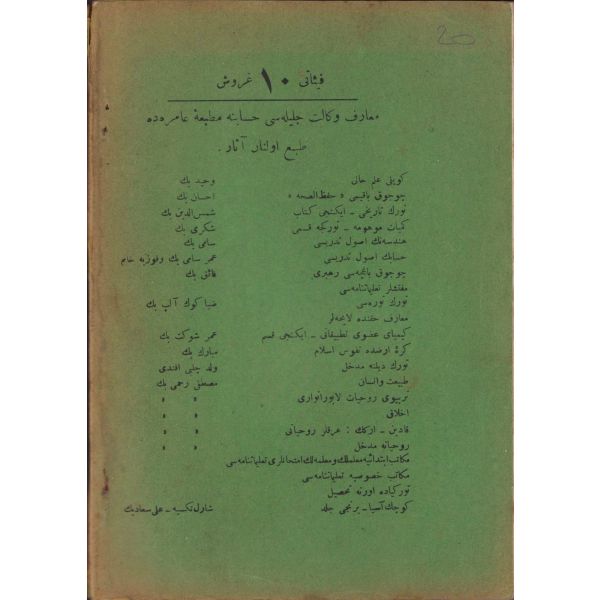 20
فیئاتی ١٠ غروش
معارف وکالت جلیله‌سی حسابنه مطبعهٔ عامره‌ده
طبع اولنان آثار .
کویلی علم حالی وحید بك
چوجوق باقیمی « حفظ الصحه » احسان بك
تورك تاریخی ـ ایکنجی کتاب شمس‌الدین بك
کمیات موهومه ـ تورکجه قسمی شکری بك
هندسه‌نك اصول تدریسی سامی بك
حسابك اصول تدریسی عمر سامی بك وفوزیه خانم
چوجوق باغچه‌سی رهبری فائق بك
مفتشلر تعلیماتنامه‌سی
تورك توره‌سی ضیا کوك آلپ بك
معارف حقنده لایحه‌لر
کیمیای عضوی تطبیقاتی ـ ایکنجی قسم عمر شوکت بك
کرهٔ ارضده نفوس اسلام مبارك بك
تورك دیلنه مدخل ولد چلبی افندی
طبیعت وانسان مصطفی رحمی بك
تربیوی روحیات لابوراتواری » »
اخلاق » »
قادین ـ ارکك : عرقلر روحیاتی » »
روحیاته مدخل » »
مکاتب ابتدائیه معلملك ومعلمه‌لك امتحانلری تعلیماتنامه‌سی
مکاتب خصوصیه تعلیماتنامه‌سی
تورکیاده اورته تحصیل
کوچك آسیا ـ برنجی جلد شارل تکسیه ـ علی سعاد بك